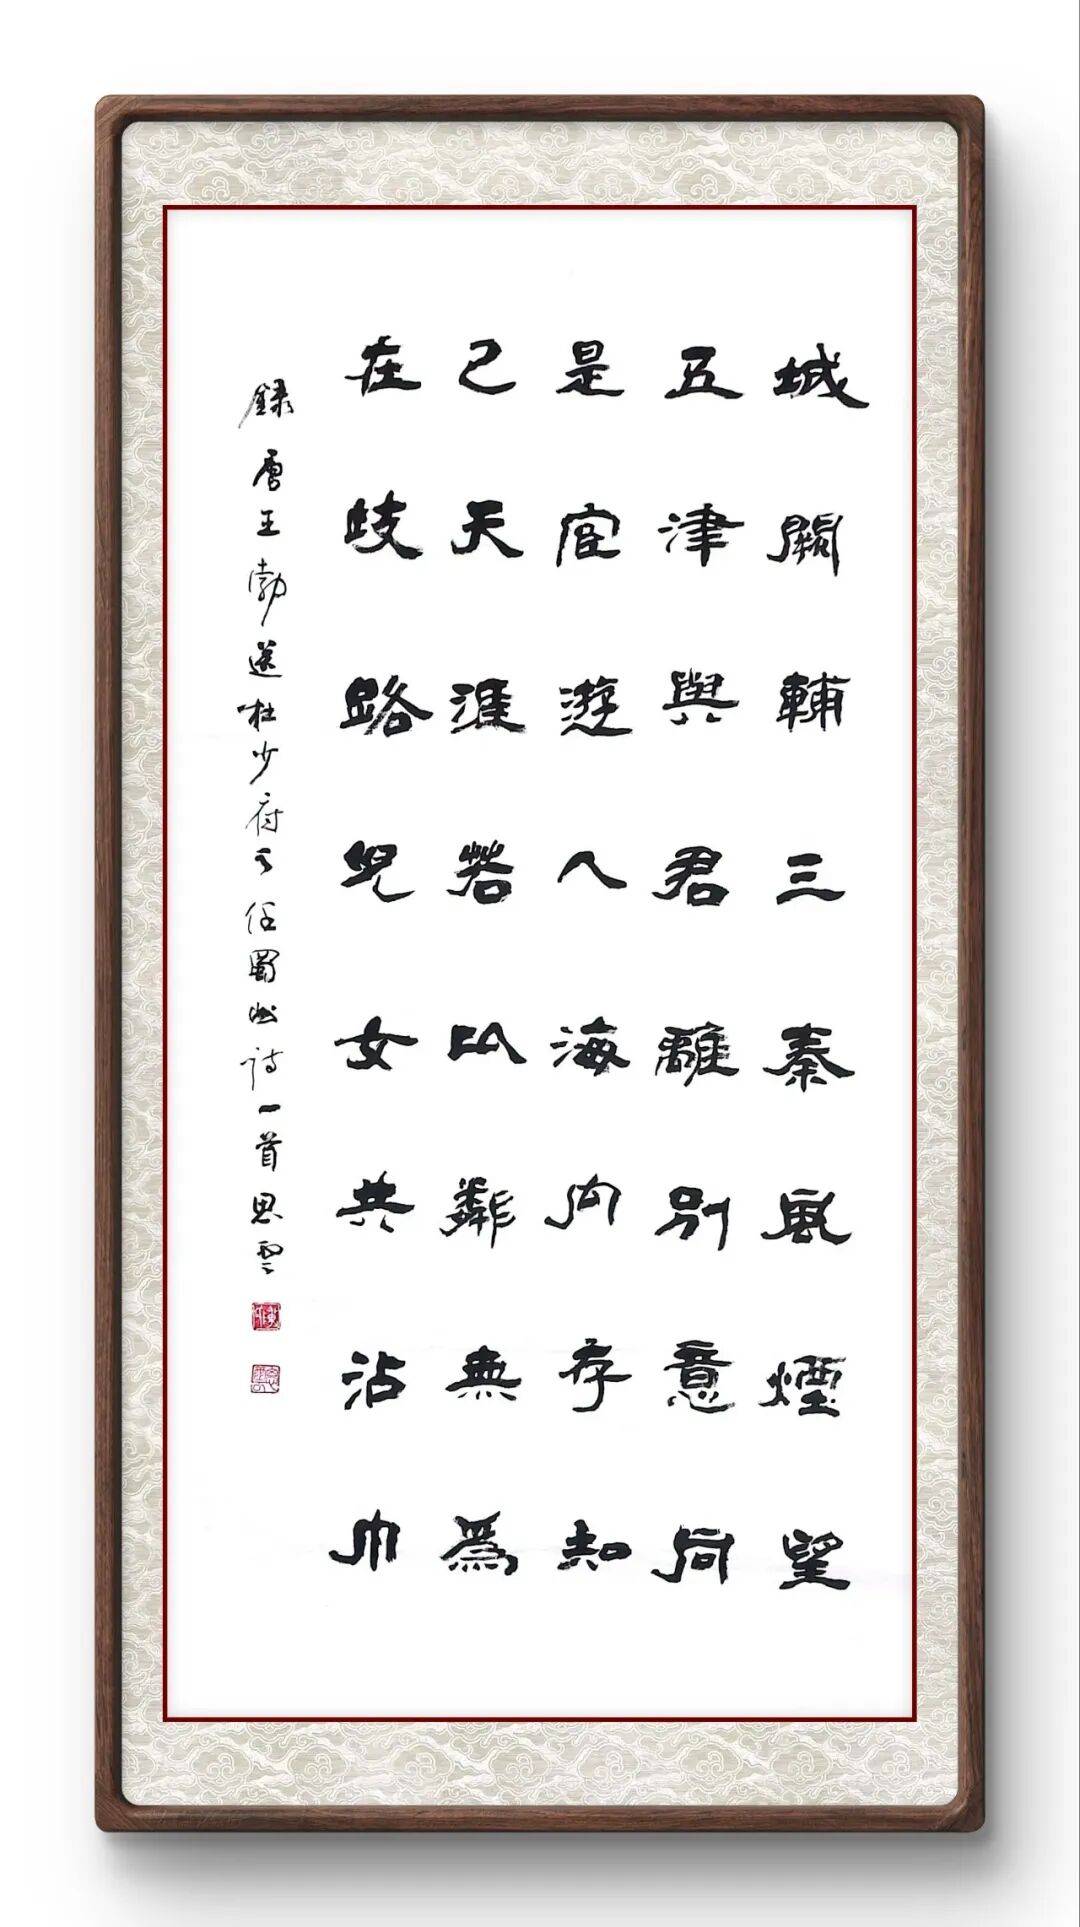 城闕輔三秦風煙望
五津與君離別意同
是宦遊人海内存知
己天涯若比鄰無為
在歧路兒女共沾巾
錄唐王勃送杜少府之任蜀州詩一首思雲